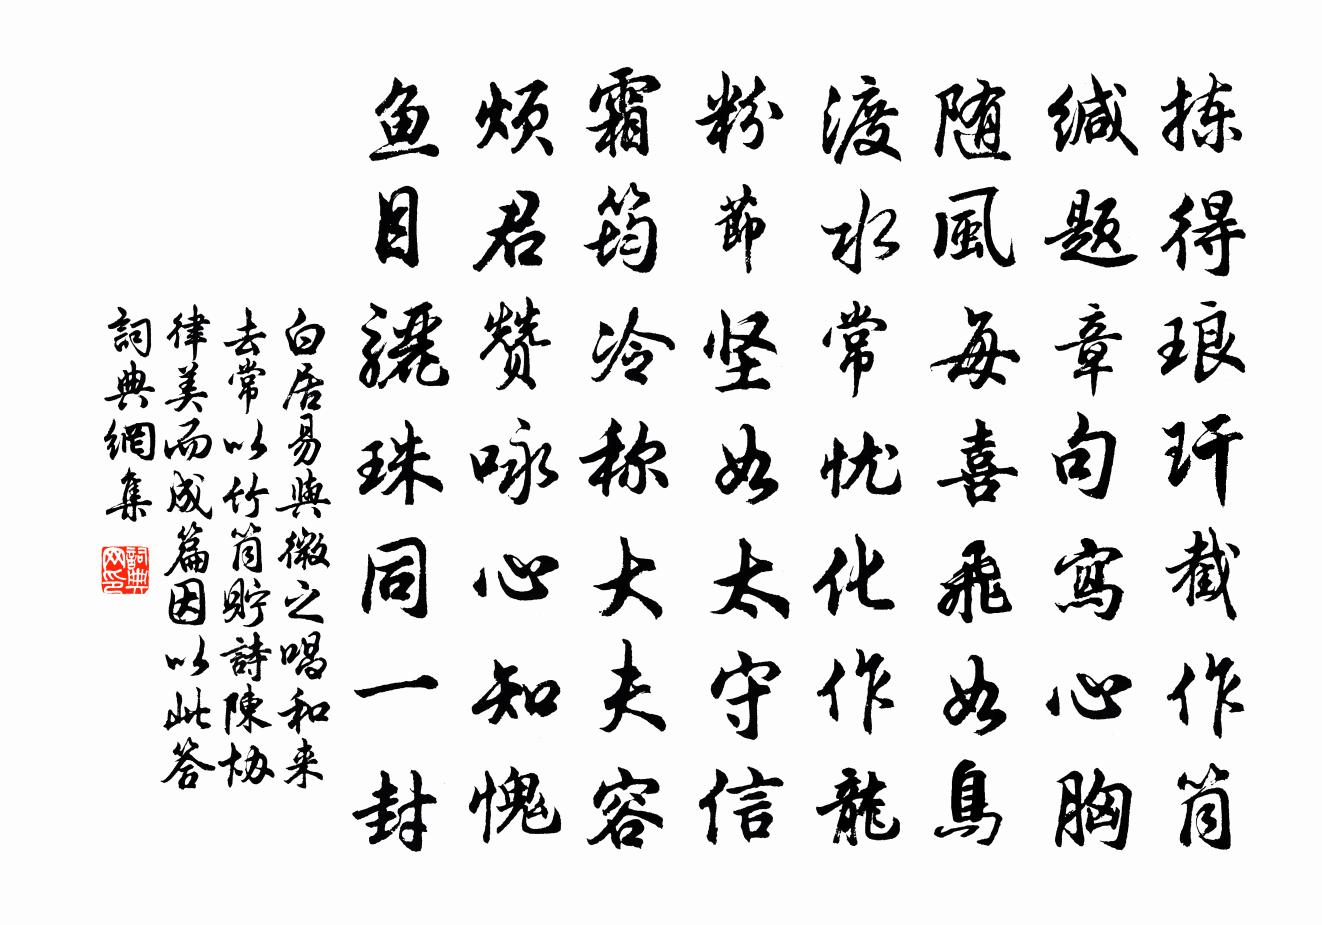 拣得琅玕截作筒
缄题章句寫心胸
随風每喜飛如鳥
渡水常忧化作龍
粉節坚如太守信
霜筠冷称大夫容
烦君赞咏心知愧
鱼目骊珠同一封
白居易與微之唱和来
去常以竹筒貯詩陳协
律美而成篇因以此答
詞典網集
詞典网印